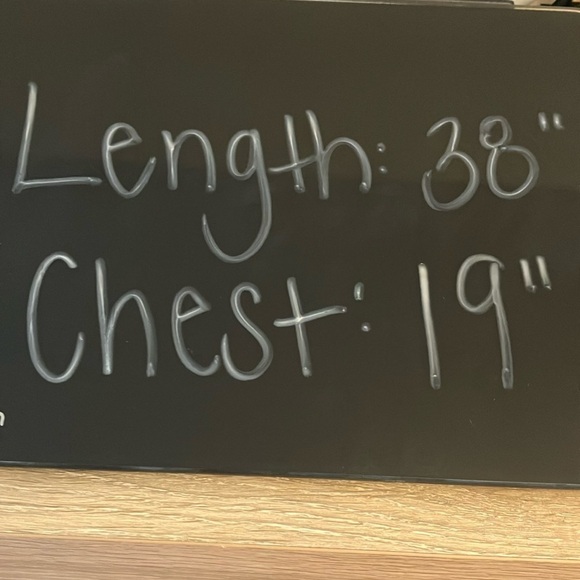 Length: 38"
Chest: 19"